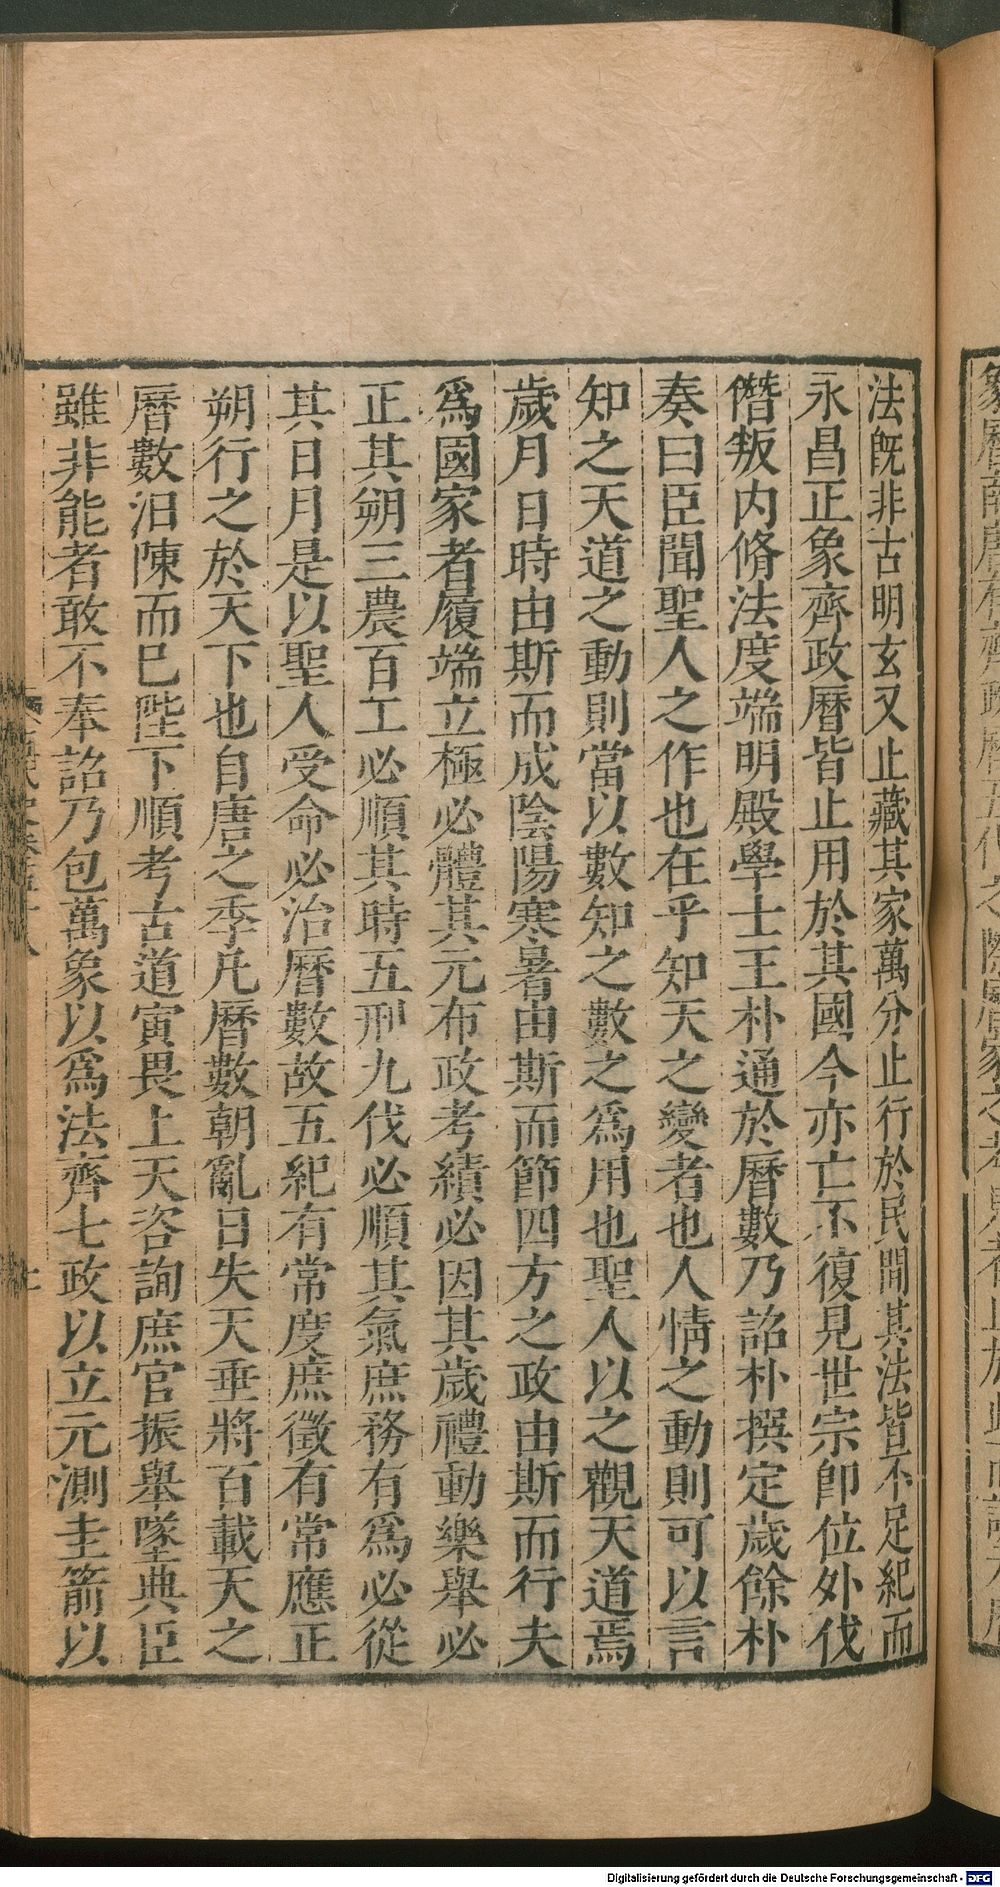 法旣非古明玄又止藏其家萬分止行於民間其法皆不足紀而
永昌正象齊政曆皆止用於其國今亦亡不復見世宗卽位外伐
僭叛内脩法度端明殿學士王朴通於曆數乃詔朴撰定歲餘朴
奏曰臣聞聖人之作也在乎知天之變者也人情之動則可以言
知之天道之動則當以數知之數之爲用也聖人以之觀天道焉
歲月日時由斯而成陰陽寒暑由斯而節四方之政由斯而行夫
爲國家者履端立極必體其元布政考績必因其歲禮動樂舉必
正其朔三農百工必順其時五刑九伐必順其氣庶務有爲必從
其日月是以聖人受命必治曆數故五紀有常度庶徵有常應正
朔行之於天下也自唐之季凡曆數朝亂日失天垂將百載天之
曆數汨陳而已陛下順考古道寅畏上天咨詢庶官振舉墜典臣
雖非能者敢不奉詔乃包萬象以爲法齊七政以立元測圭箭以
Digitalisierung gefördert durch die Deutsche Forschungsgemeinschaft - DFG